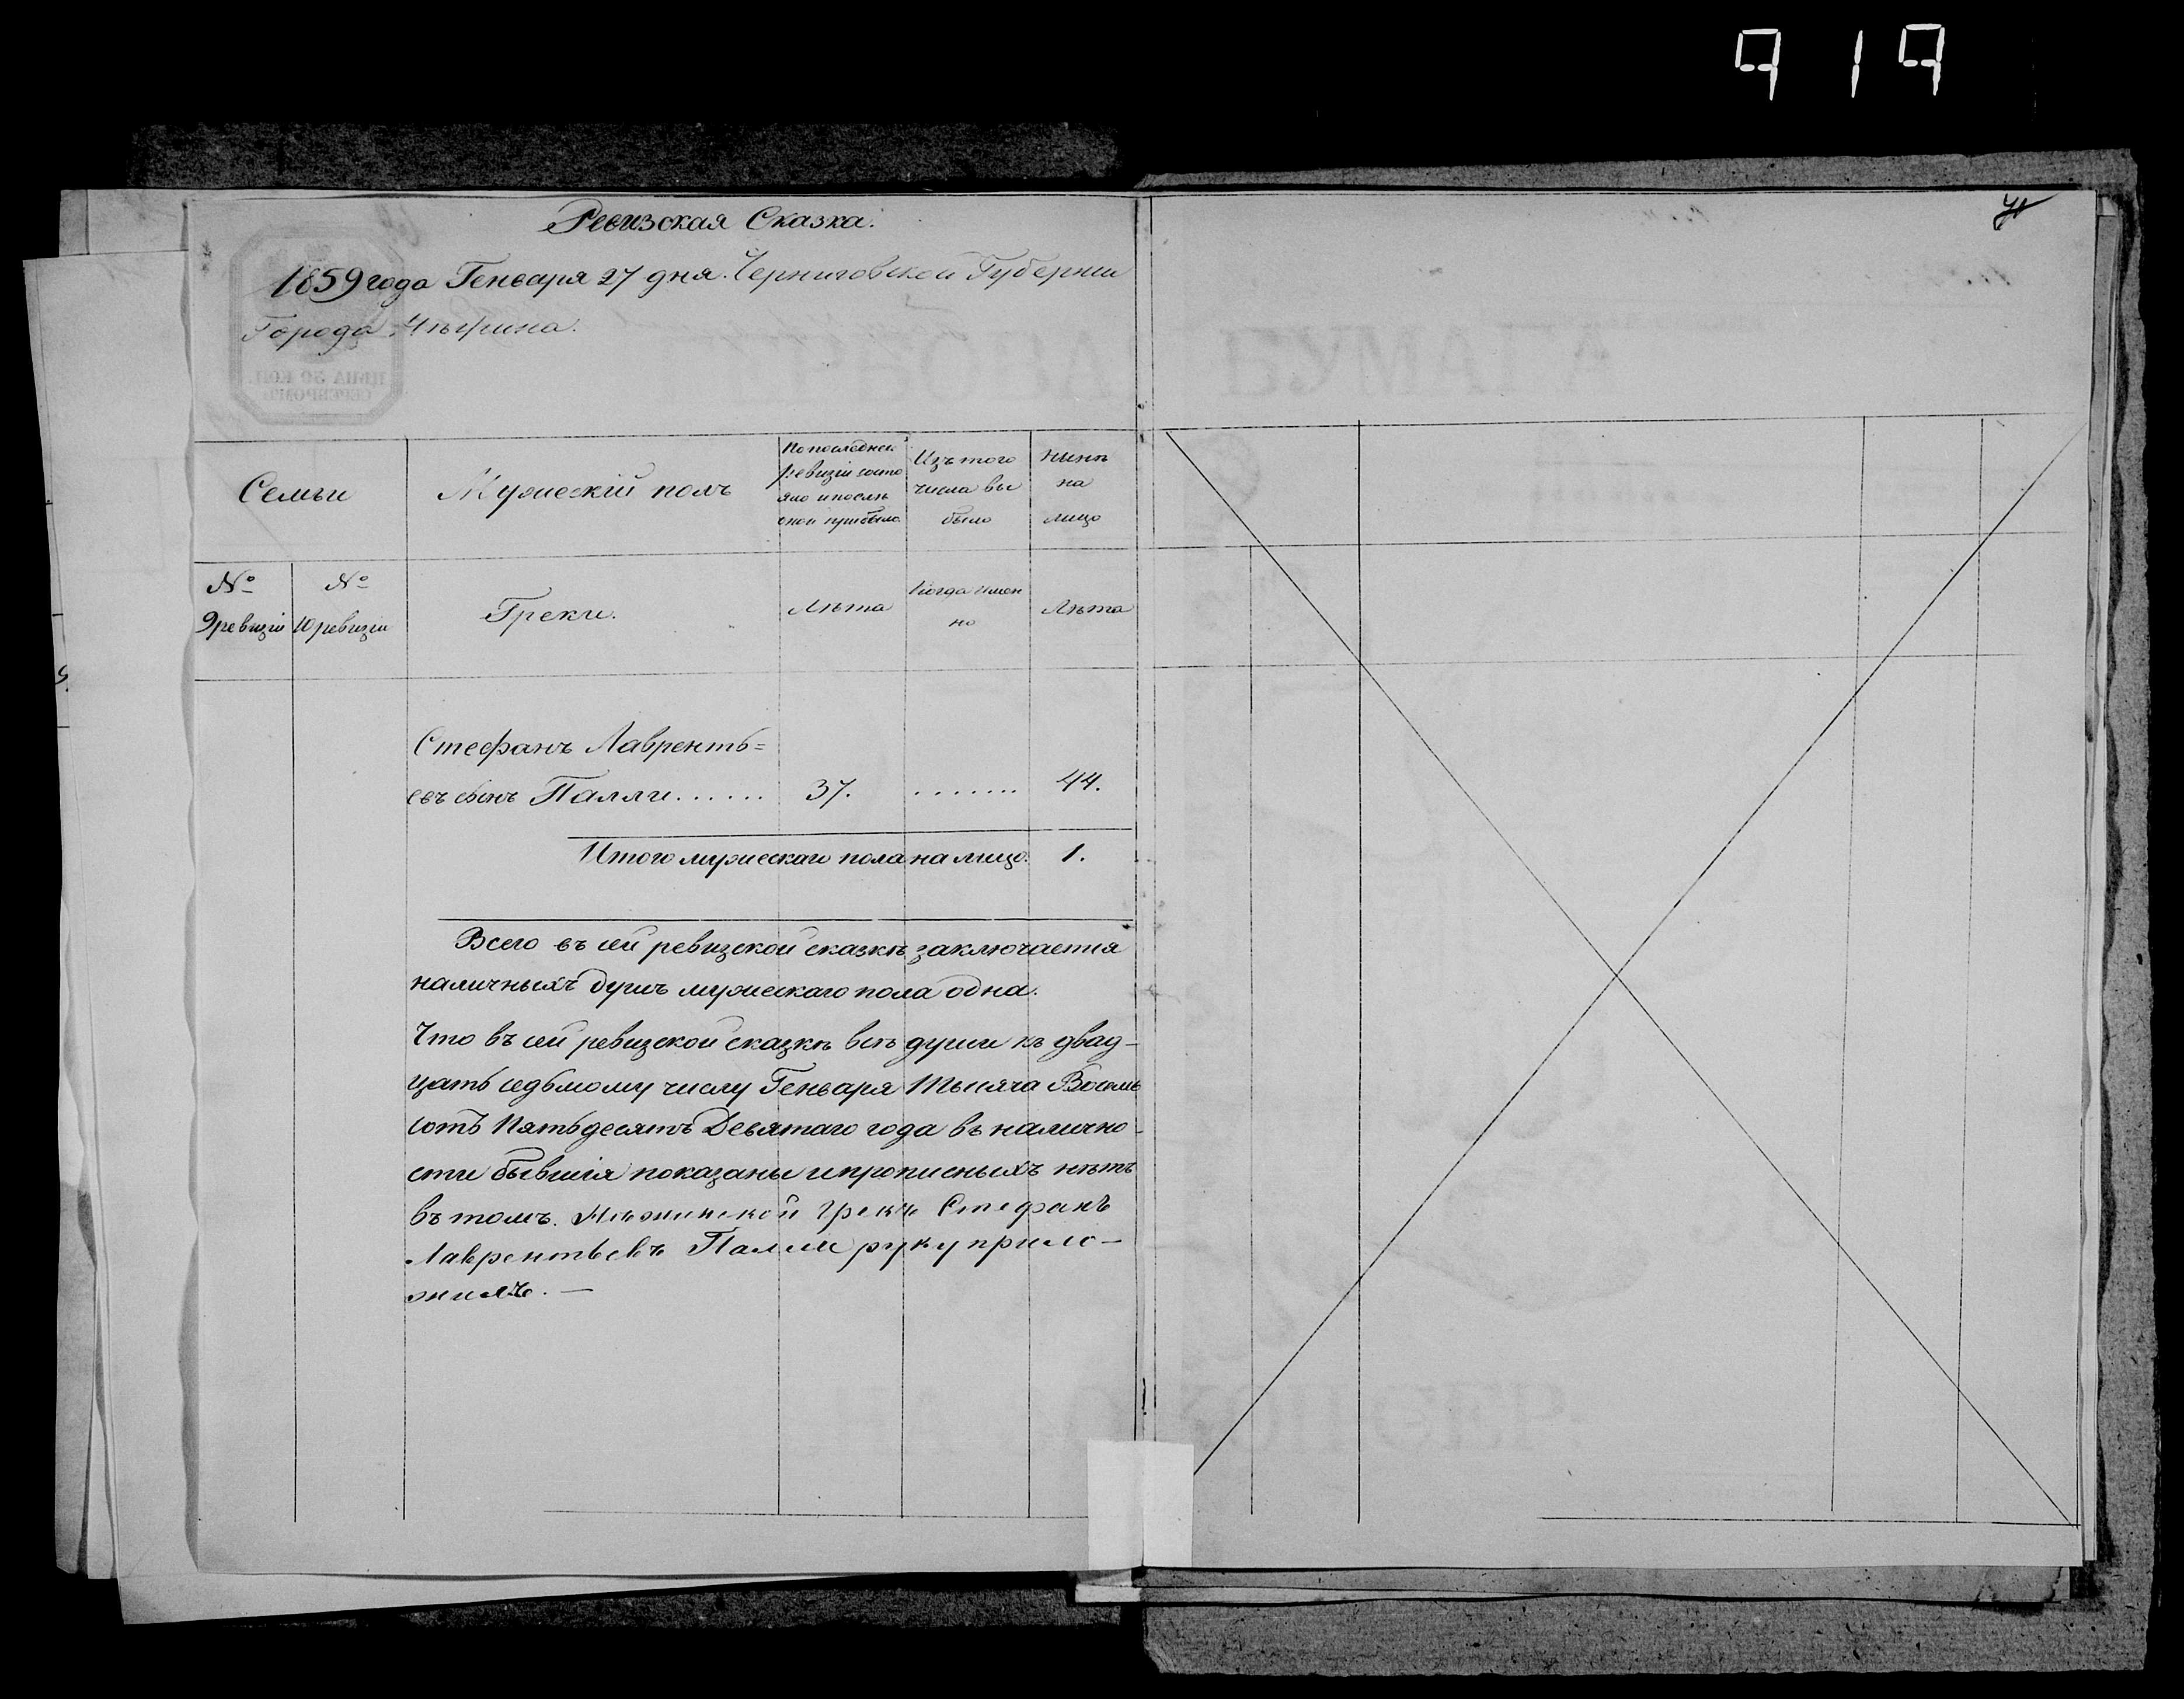 919
71
Ревизская Сказка.
1859 года Генваря 27 дня. Черниговской Губернии
Города Нѣжина.
ЦѢНА 30 КОП.
СЕРЕБРОМЪ
Семьи
Мужескій полъ
По последней
ревизіи состо
яло и послѣ
оной прибыло
Изъ того
числа вы
было
нынѣ
на
лицо
№
9 ревизіи
№
10 ревизіи
Греки.
Лѣта
Когда имен
но
Лѣта
Стефанъ Лаврентъ=
евъ сынъ Палли...... 37. ........ 44.
Итого мужескаго пола на лицо. 1.
Всего въ сей ревизской сказкѣ заключается
наличныхъ душъ мужескаго пола одна.
Что въ сей ревизской сказкѣ всѣ души къ двад-
цать седьмому числу Генваря Тысяча Восемь
сотъ Пятьдесятъ Девятаго года въ налично-
сти бывшія показаны и прописныхъ нѣтъ
въ томъ. Нѣжинской Грекъ Стефанъ
Лаврентьевъ Палли руку прило-
жилъ. —